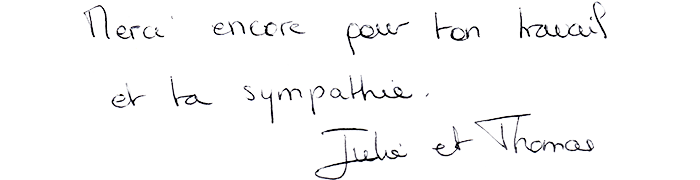 Merci encore pour ton travail
et ta sympathie.
Julie et Thomas